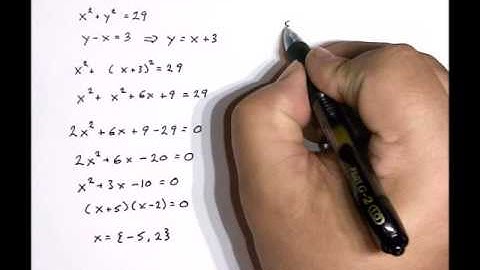 x² + y² = 29
y - x = 3 ⇒ y = x + 3
x² + (x+3)² = 29
x² + x² + 6x + 9 = 29
2x² + 6x + 9 - 29 = 0
2x² + 6x - 20 = 0
x² + 3x - 10 = 0
(x+5)(x-2) = 0
x = {-5, 2}
G-2